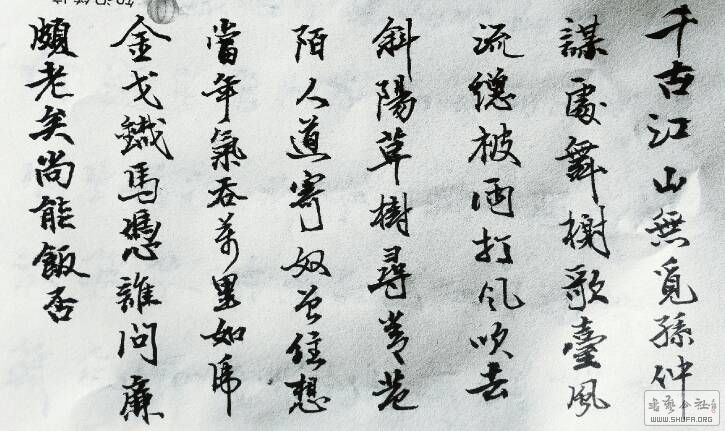 千古江山無覓孫仲
謀處舞榭歌臺風
流總被雨打风吹去
斜陽草樹尋常巷
陌人道寄奴曾住想
當年氣吞萬里如虎
金戈鐵馬憑誰問廉
頗老矣尚能飯否
WWW.SHUFA.ORG